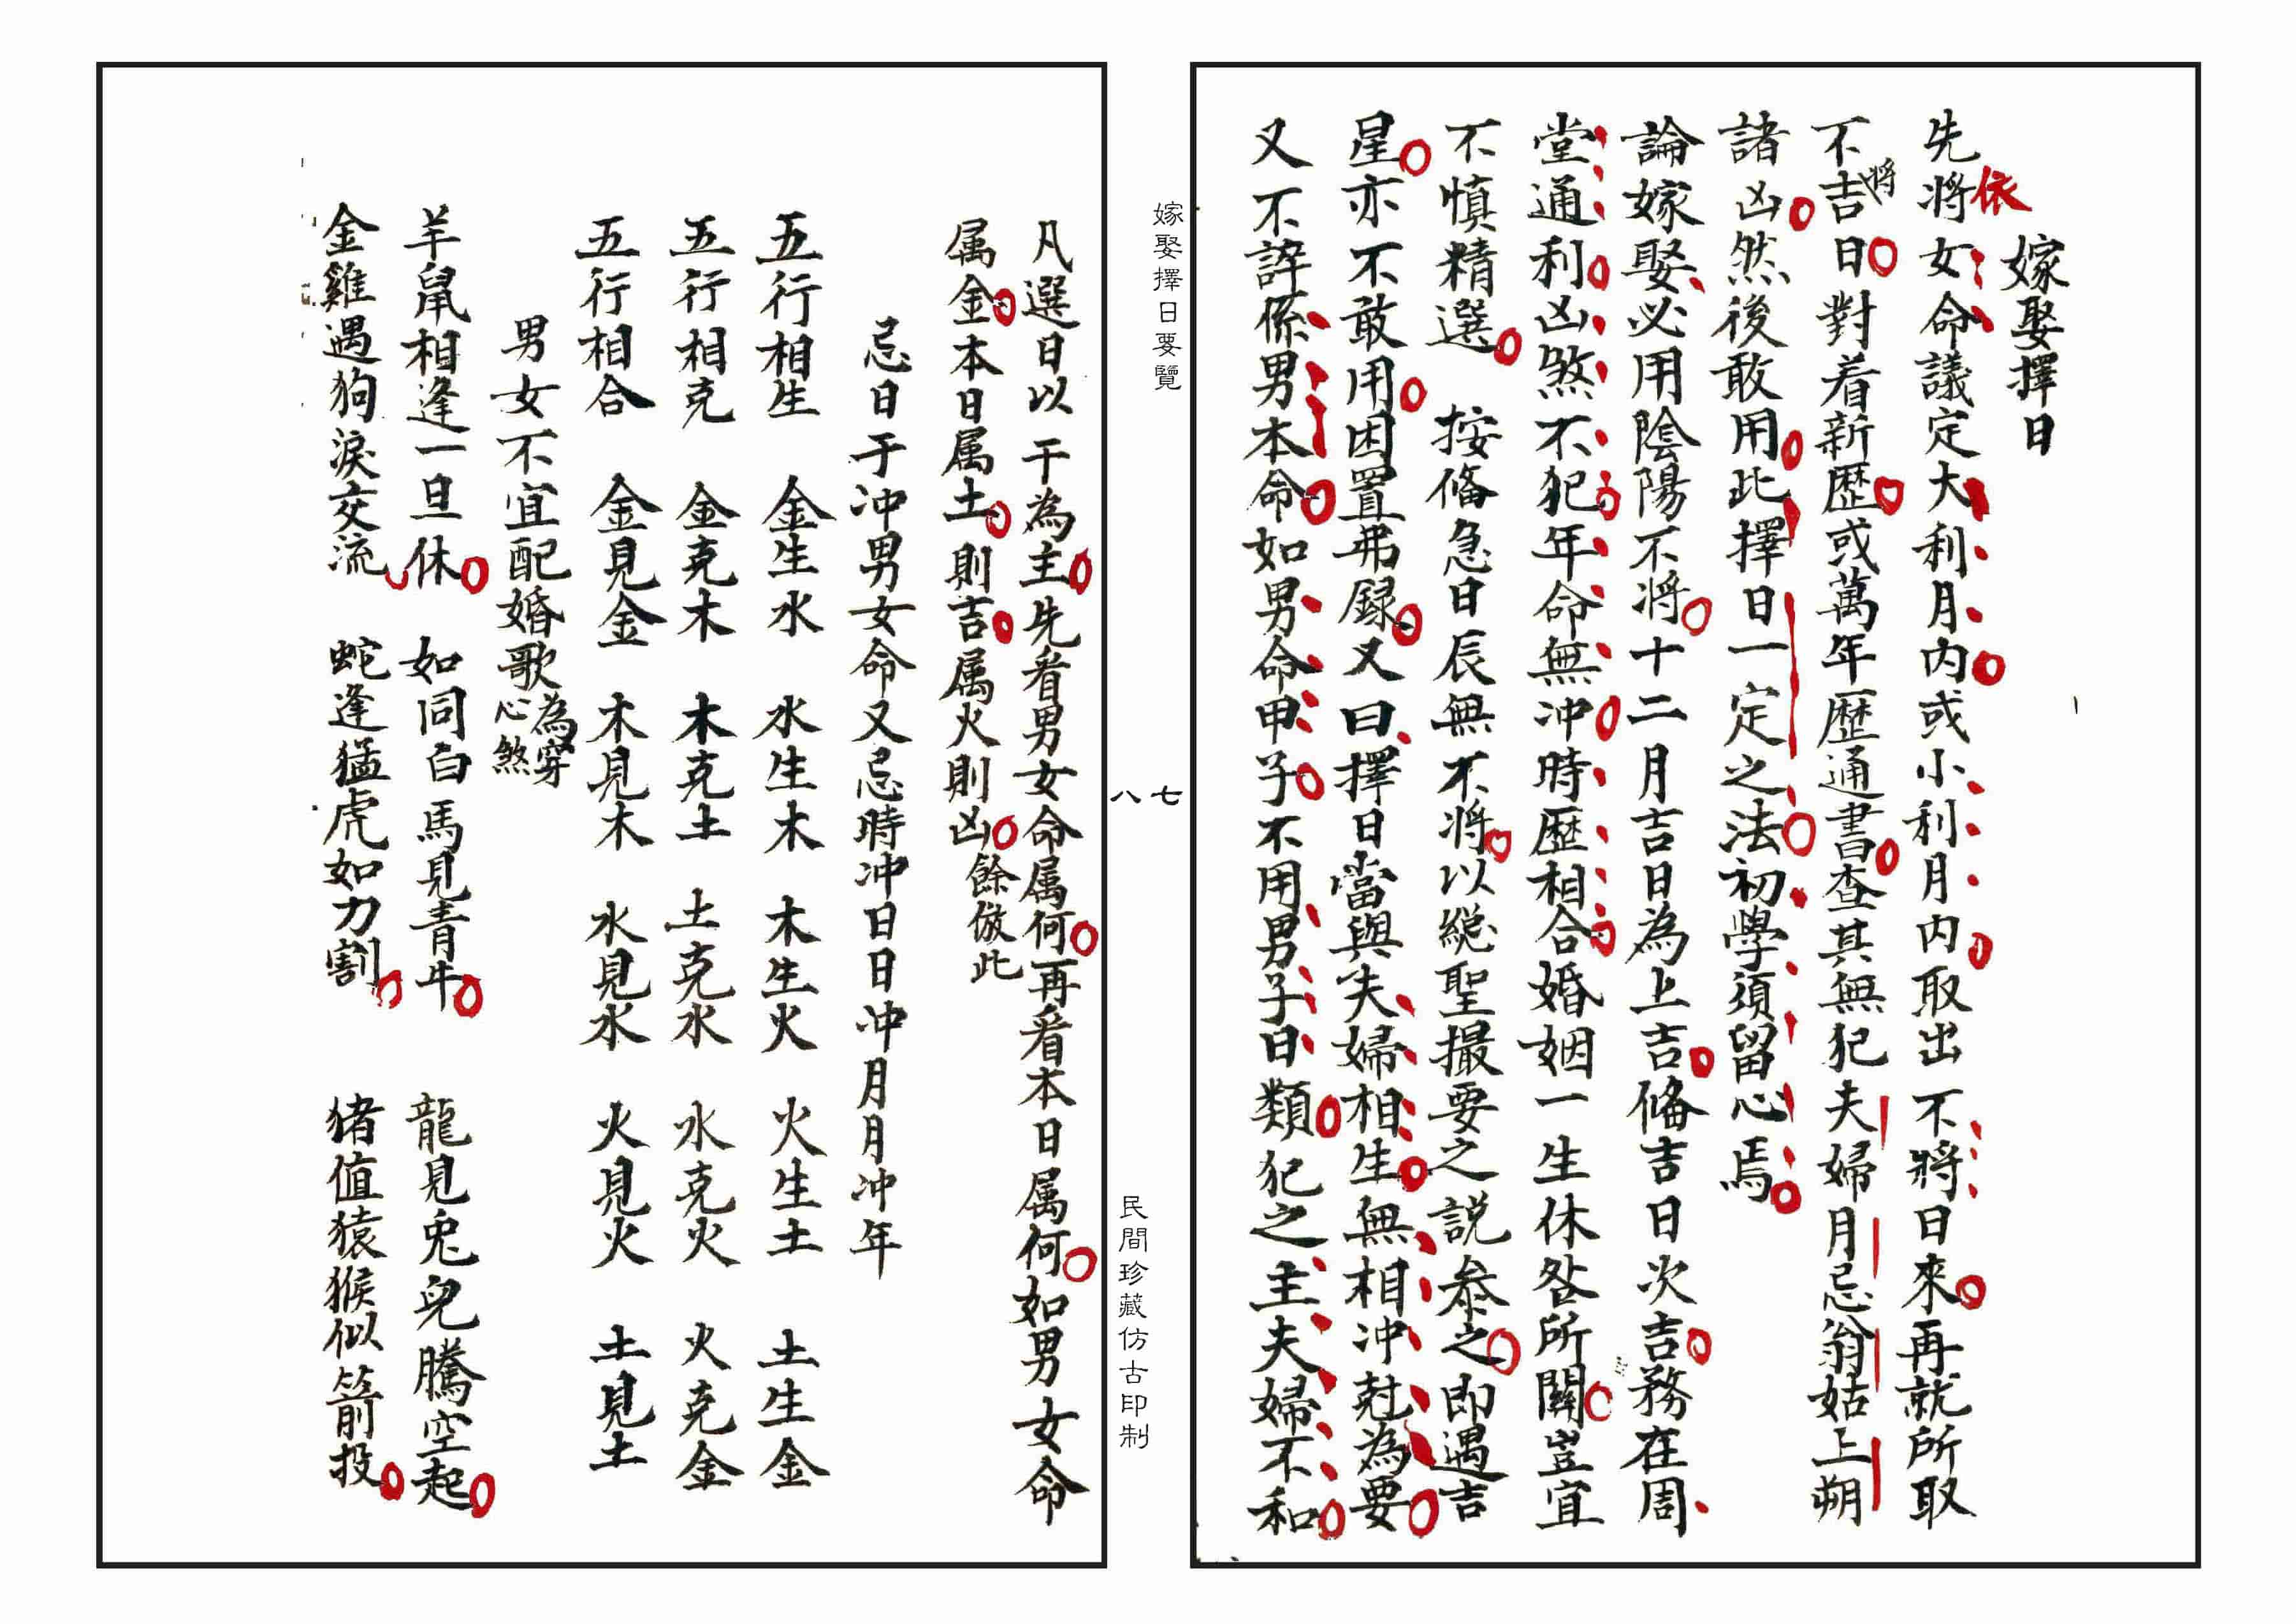 嫁娶擇日
依
先將女命議定大利月內或小利月內取出不將日來再就所取
將
不吉日對着新歷或萬年歷通書查其無犯夫婦月忌翁姑上朔
諸凶然後敢用此擇日一定之法初學須留心焉
論嫁娶必用陰陽不將十二月吉日為上吉俻吉日次吉務在周
堂通利凶煞不犯年命無冲時歷相合婚姻一生休咎所關豈宜
不慎精選 按俻急日辰無不將以総聖撮要之説叅之即遇吉
星亦不敢用因置弗録又曰擇日當與夫婦相生無相冲尅為要
又不諱係男本命如男命甲子不用男子日類犯之主夫婦不和
嫁娶擇日要覽
七
八
民間珍藏仿古印制
凡選日以干為主先看男女命属何再看本日属何如男女命
属金本日属土則吉属火則凶餘倣此
忌日干冲男女命又忌時冲日日冲月月冲年
五行相生 金生水 水生木 木生火 火生土 土生金
五行相克 金克木 木克土 土克水 水克火 火克金
五行相合 金見金 木見木 水見水 火見火 土見土
男女不宜配婚歌為穿心煞
羊鼠相逢一旦休 如同白馬見青牛 龍見兎兒騰空起
金雞遇狗淚交流 蛇逢猛虎如力割 猪值猿猴似箭投